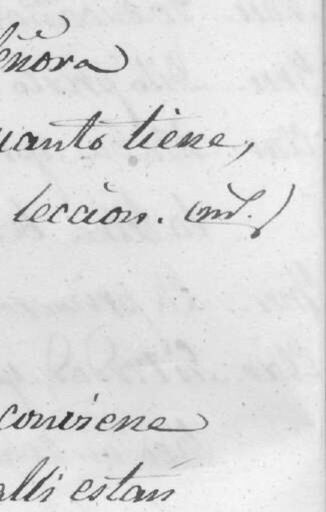 eñora
uanto tiene,
leccion.
conviene
alli estan